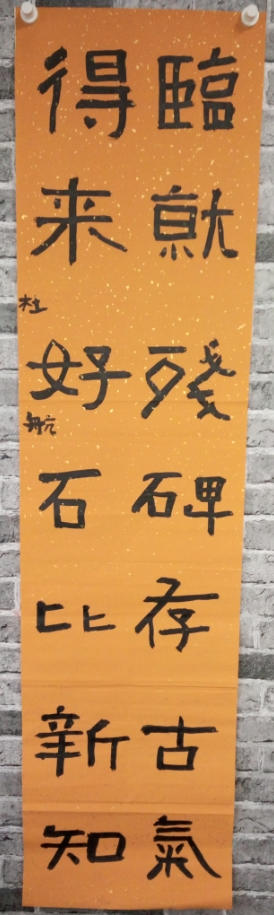 臨就殘碑存古氣
得来好石比新知
杜航